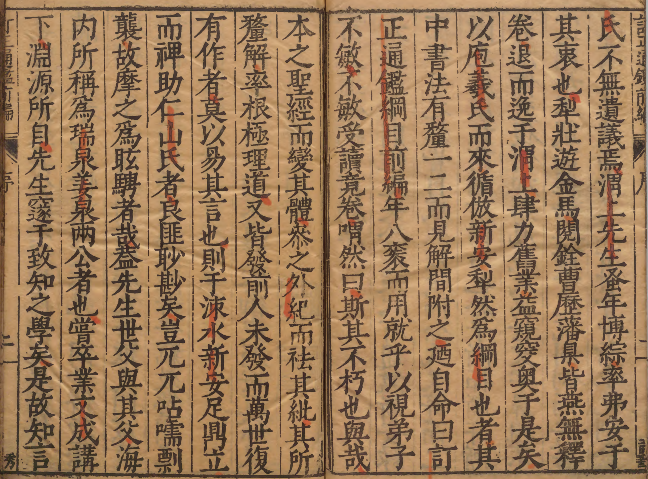 氏不無遺議焉渭上先生蚤年博綜率弗安于
其衷也犁壯遊金馬閱銓曹歷藩臬皆燕無釋
卷退而逸于渭上肆力舊業益窺突奧于是矣
以庖羲氏而來循倣新安犁然為綱目也者其
中書法有釐一二而見解間附之廼自命曰訂
正通鑑綱目前編年八袠而用就乎以視弟子
不敏不敏受讀竟卷喟然曰斯其不朽也與哉
本之聖經而變其體叅之外紀而祛其紕其所
釐解率根極理道又皆發前人未發而萬世復
有作者莫以易其言也則于涑水新安足鼎立
而禆助仁山氏者良匪眇尠矣豈兀兀呫嚅剽
襲故摩之為眩騁者哉蓋先生世父與其父海
内所稱為瑞泉姜泉兩公者也嘗卒業文成講
下淵源所自先生窔于致知之學矣是故知言